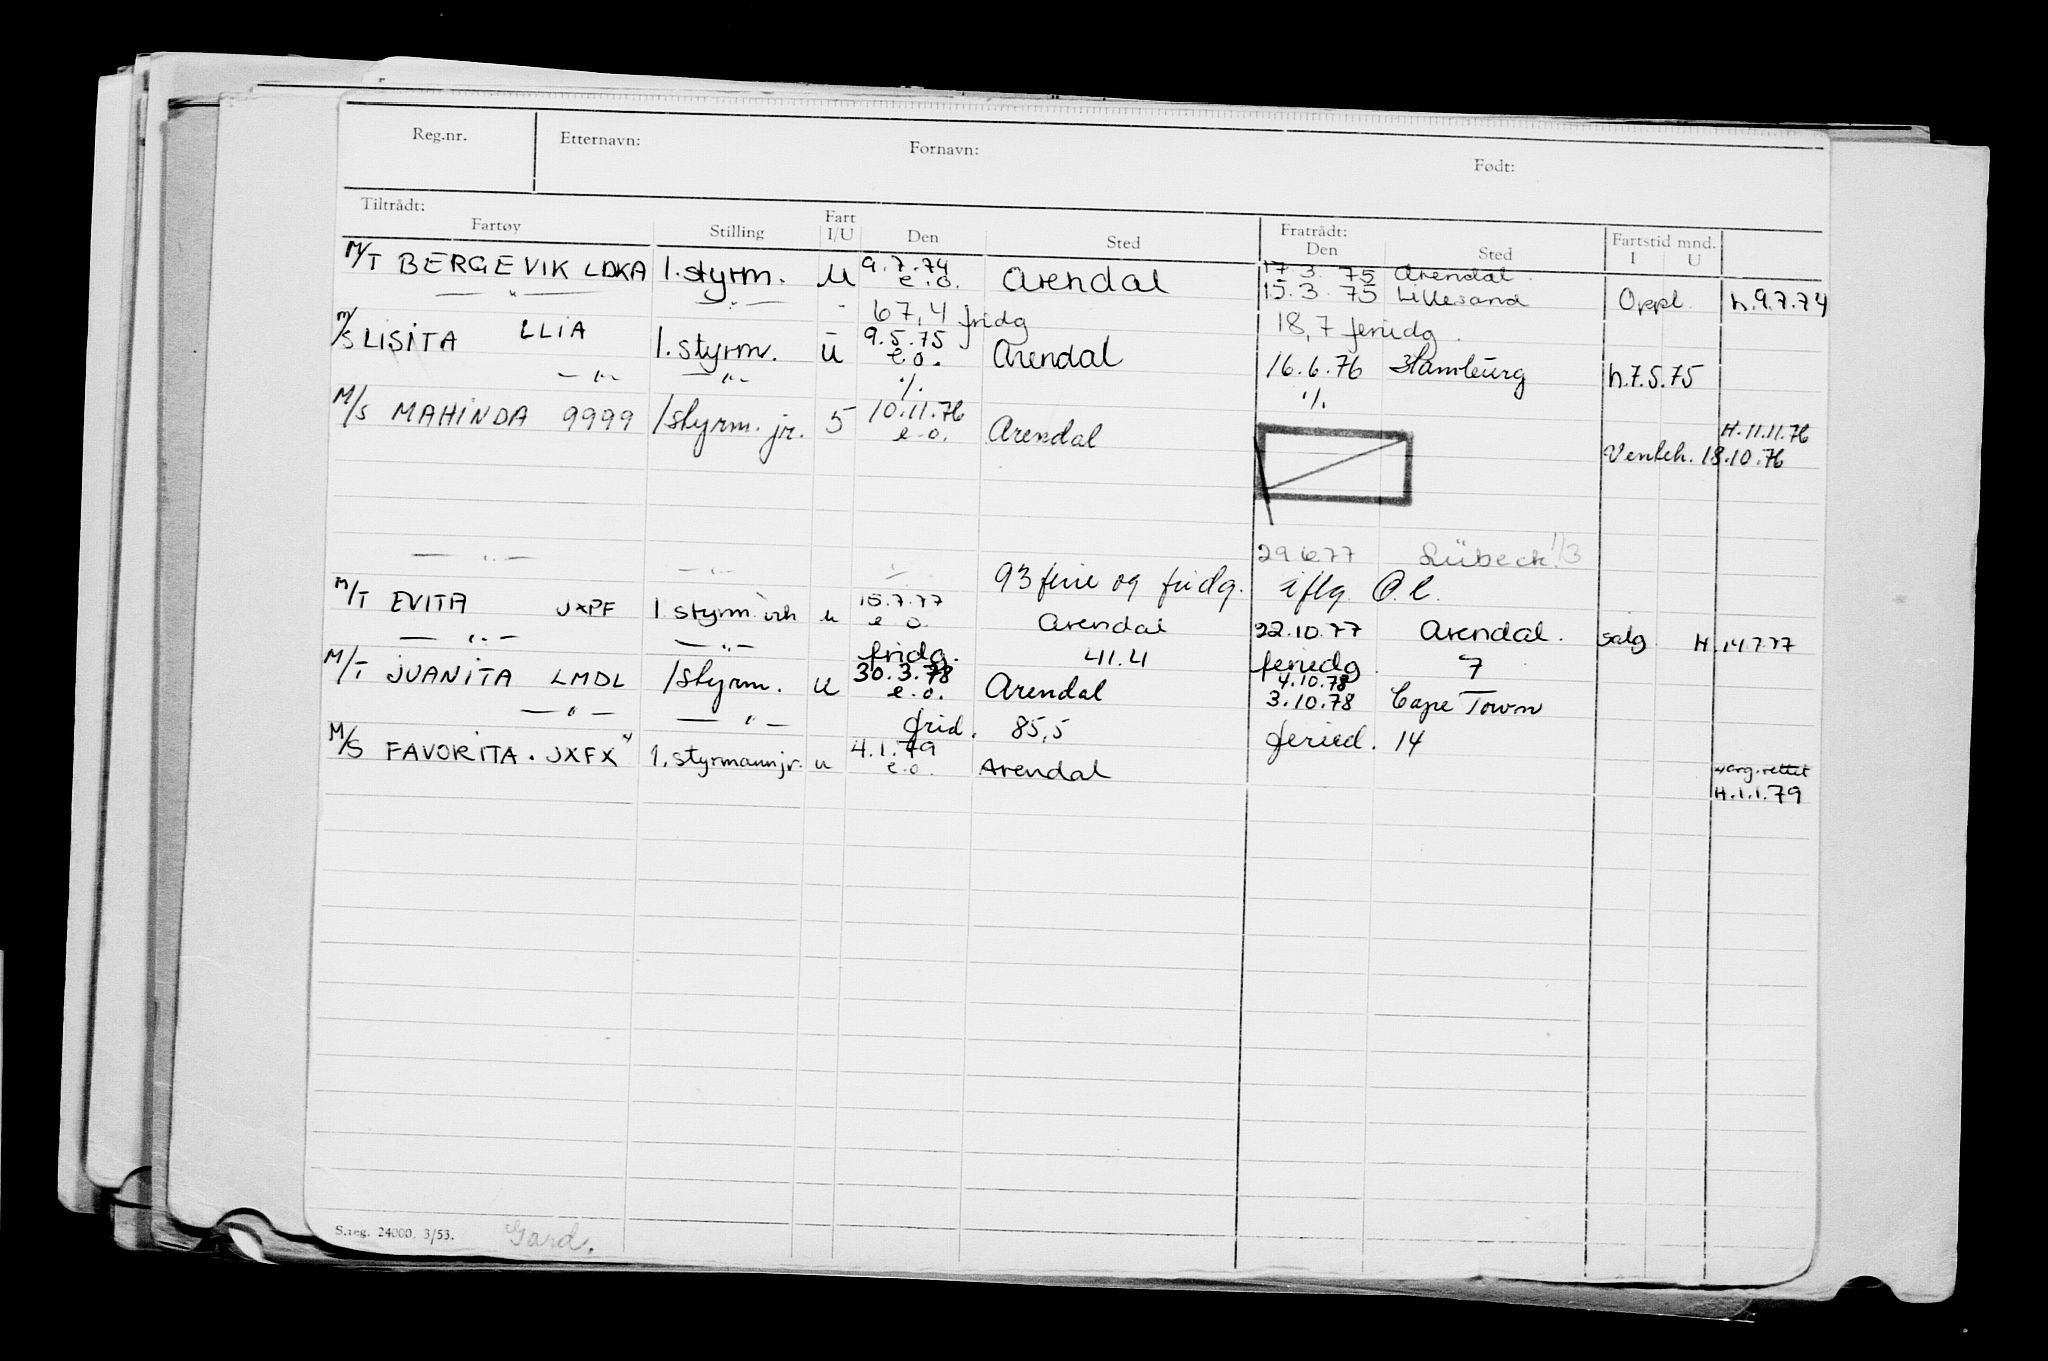 Reg.nr. Etternavn: Fornavn: Født:
Tiltrådt: Fratrådt:
Fartøy Stilling Fart I/U Den Sted Den Sted Fartstid mnd. I U
M/T BERGEVIK LDKA 1. styrm. u 9.7.74 e.o. Arendal 17.3.75 Arendal
— " — — " — - 15.3.75 Lillesand Oppl. h.9.7.74
67,4 fridg 18,7 feriedg.
M/S LISITA LLIA 1. styrm. u 9.5.75 e.o. Arendal 16.6.76 Hamburg h.7.5.75
— " — — " — ./. ./.
M/S MAHINDA 9999 1 styrm. jr. 5 10.11.76 e.o. Arendal H.11.11.76
Ventch. 18.10.76
— " — — " — 29.6.77 Lübeck 1/3
93 ferie og fridg. iflg. O.l.
M/T EVITA JXPF 1. styrm. u 15.7.77 e.o. Arendal 22.10.77 Arendal. salg H.14.7.77
— " — — " — fridg. 41.4 feriedg. 7
M/T JUANITA LMDL 1 styrm. u 30.3.78 e.o. Arendal 4.10.78
3.10.78 Cape Town
— " — — " — frid. 85,5 feried. 14
M/S FAVORITA. JXFX 1. styrmann jr. u 4.1.79 e.o. Arendal
H.1.1.79
S.reg. 24000. 3/53. Gard.